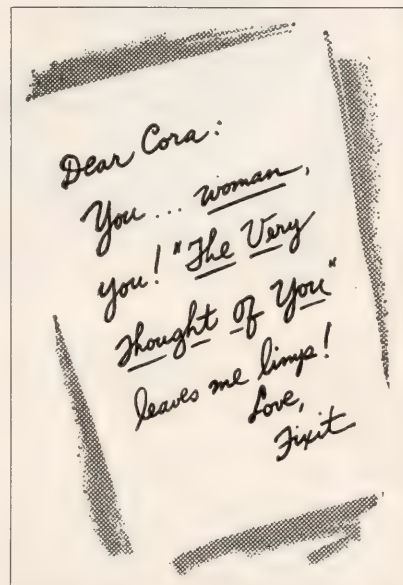 Dear Cora:
You... woman,
you! "The Very
Thought of You"
leaves me limp!
Love,
Fixit